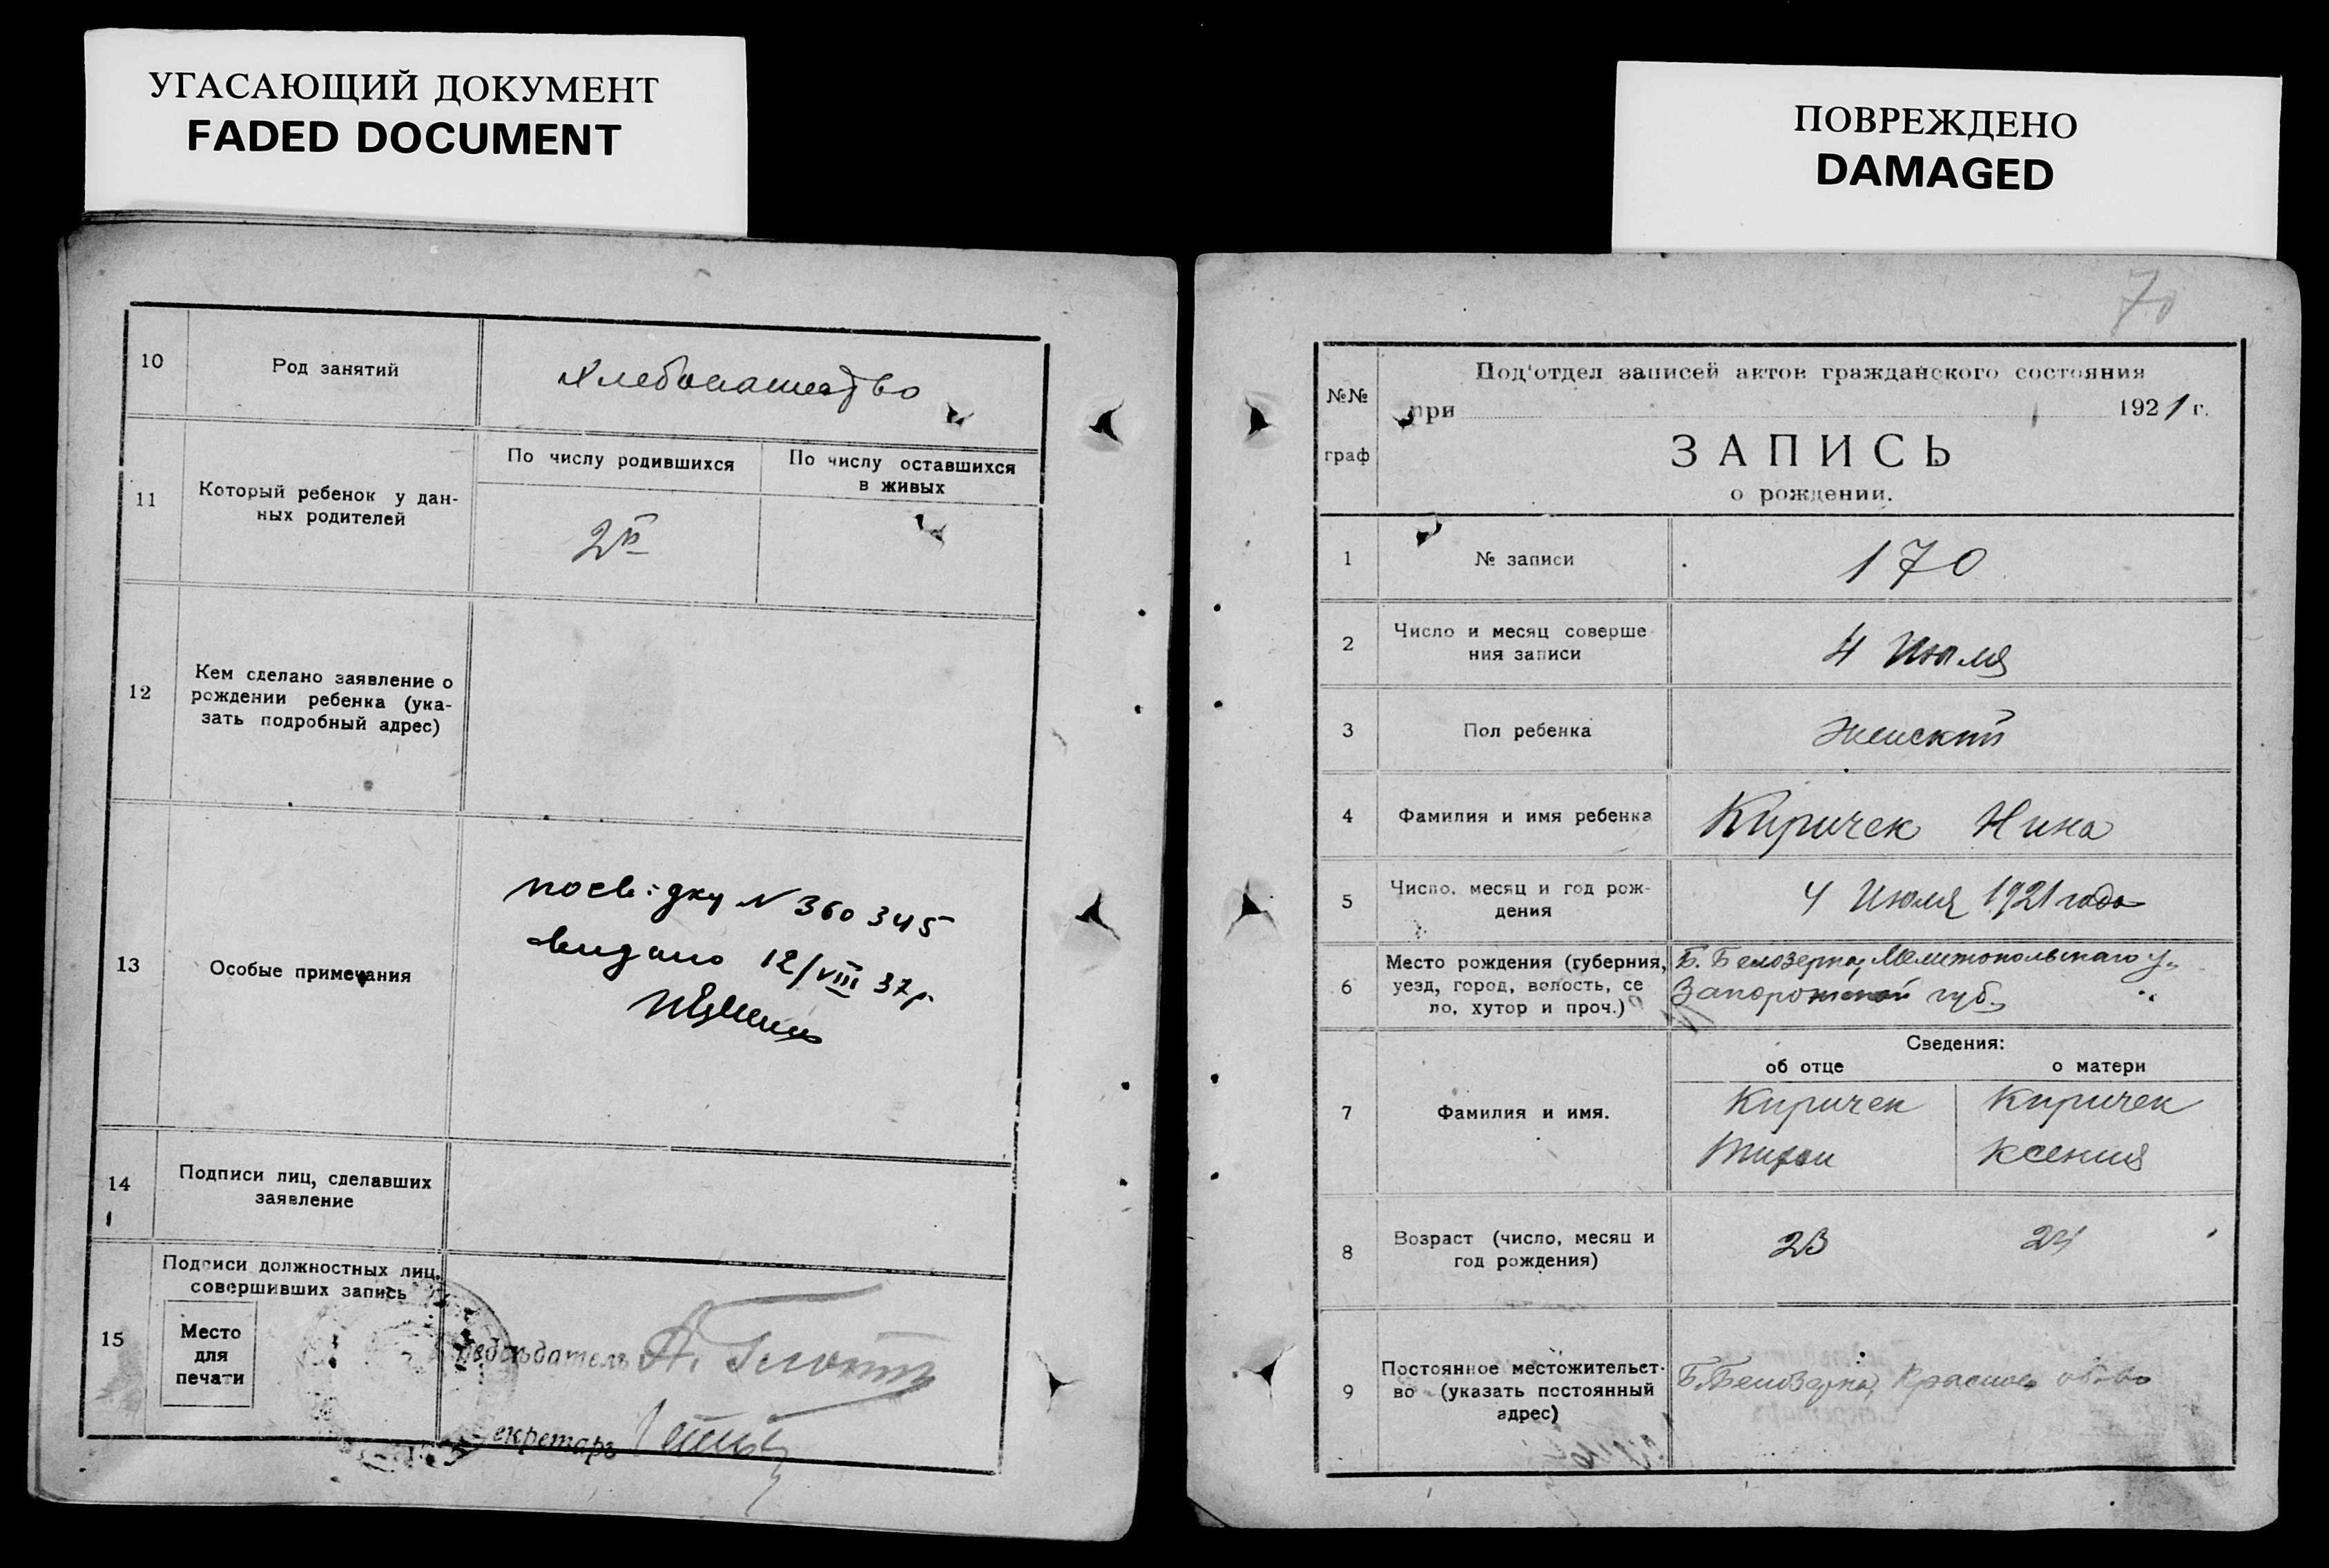 УГАСАЮЩИЙ ДОКУМЕНТ
FADED DOCUMENT
10
Род занятий
Хлебопашество
11
Который ребенок у дан-
ных родителей
По числу родившихся
2й
По числу оставшихся
в живых
12
Кем сделано заявление о
рождении ребенка (ука-
зать подробный адрес)
13
Особые примечания
посвiдку N 360345
видано 12/VIII 37р.
14
Подписи лиц, сделавших
заявление
15
Подписи должностных лиц,
совершивших запись
Место
для
печати
редсѣдатель А.
екретарь
ПОВРЕЖДЕНО
DAMAGED
70
№№
граф
Под'отдел записей актов гражданского состояния
при 1921 г.
ЗАПИСЬ
о рождении.
1
№ записи
170
2
Число и месяц соверше-
ния записи
4 Июля
3
Пол ребенка
Женский
4
Фамилия и имя ребенка
Киричек Нина
5
Число, месяц и год рож-
дения
4 Июля 1921 года
6
Место рождения (губерния,
уезд, город, волость, се
ло, хутор и проч.)
Б. Белозерка, Мелитопольскаго у.
Запорожской губ.
Сведения:
об отце
о матери
7
Фамилия и имя.
Киричек
Киричек
Ксения
8
Возраст (число, месяц и
год рождения)
23
24
9
Постоянное местожительст-
во (указать постоянный
адрес)
Б. Белозерка, Красное об-во